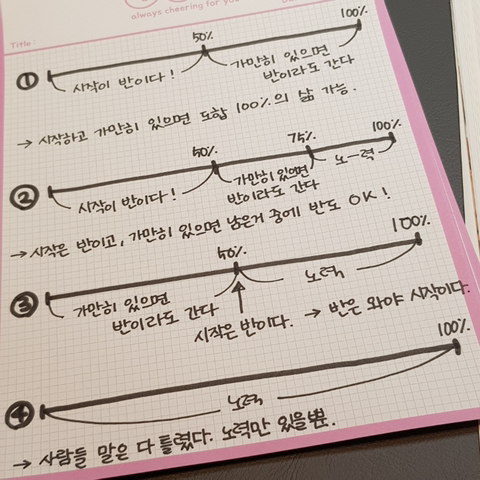 always cheering for you
Title :
① 50% 100%
시작이 반이다! 가만히 있으면
반이라도 간다
→ 시작하고 가만히 있으면 도합 100%의 삶 가능.
② 50% 75% 100%
시작이 반이다! 가만히 있으면 노-력
반이라도 간다
→ 시작은 반이고, 가만히 있으면 남은거 중에 반도 OK!
③ 50% 100%
가만히 있으면 노력
반이라도 간다
시작은 반이다. → 반은 와야 시작이다.
④ 100%
노력
→ 사람들 말은 다 틀렸다. 노력만 있을뿐.